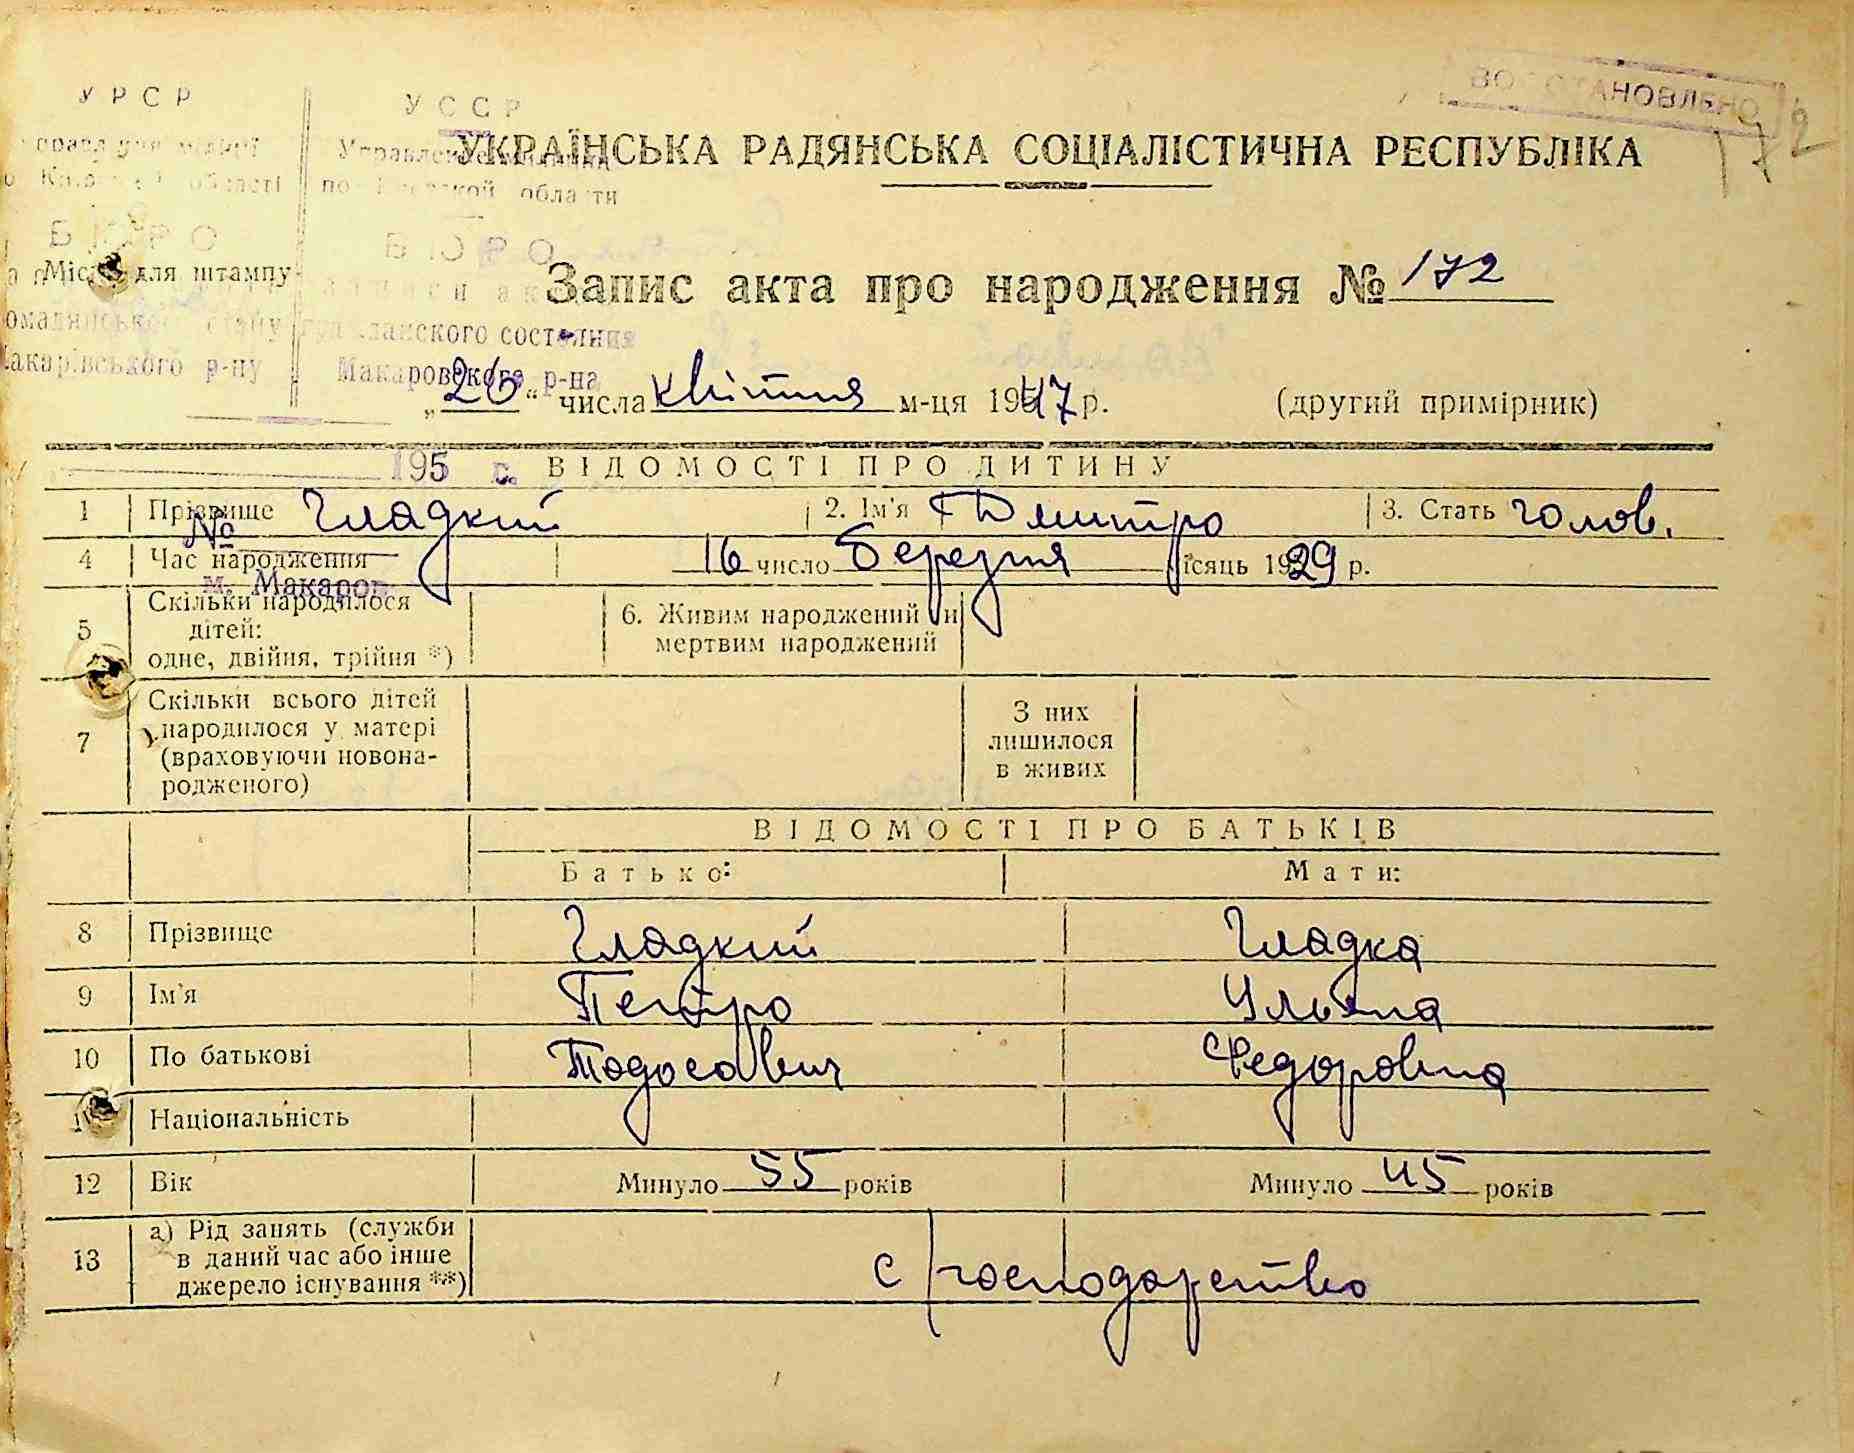 УРСР
УССР
ВОССТАНОВЛЕНО
172
УКРАЇНСЬКА РАДЯНСЬКА СОЦІАЛІСТИЧНА РЕСПУБЛІКА
области
БЮРО
БЮРО
Місце для штампу
Запис акта про народження № 172
гражданского состояния
Макарівського р-ну
Макаровского р-на
„26“ числа квітня м-ця 1947 р. (другий примірник)
195 г.
ВІДОМОСТІ ПРО ДИТИНУ
1 Прізвище Гладкий 2. Ім'я Дмитро 3. Стать чолов.
№
4 Час народження 16 число березня місяць 1929 р.
м. Макаров
5 Скільки народилося дітей: одне, двійня, трійня *) 6. Живим народжений чи мертвим народжений
7 Скільки всього дітей народилося у матері (враховуючи новонародженого) З них лишилося в живих
ВІДОМОСТІ ПРО БАТЬКІВ
Батько: Мати:
8 Прізвище Гладкий Гладка
9 Ім'я Петро Ульяна
10 По батькові Тодосович Федоровна
11 Національність
12 Вік Минуло 55 років Минуло 45 років
13 а) Рід занять (служби в даний час або інше джерело існування **) с/господарство